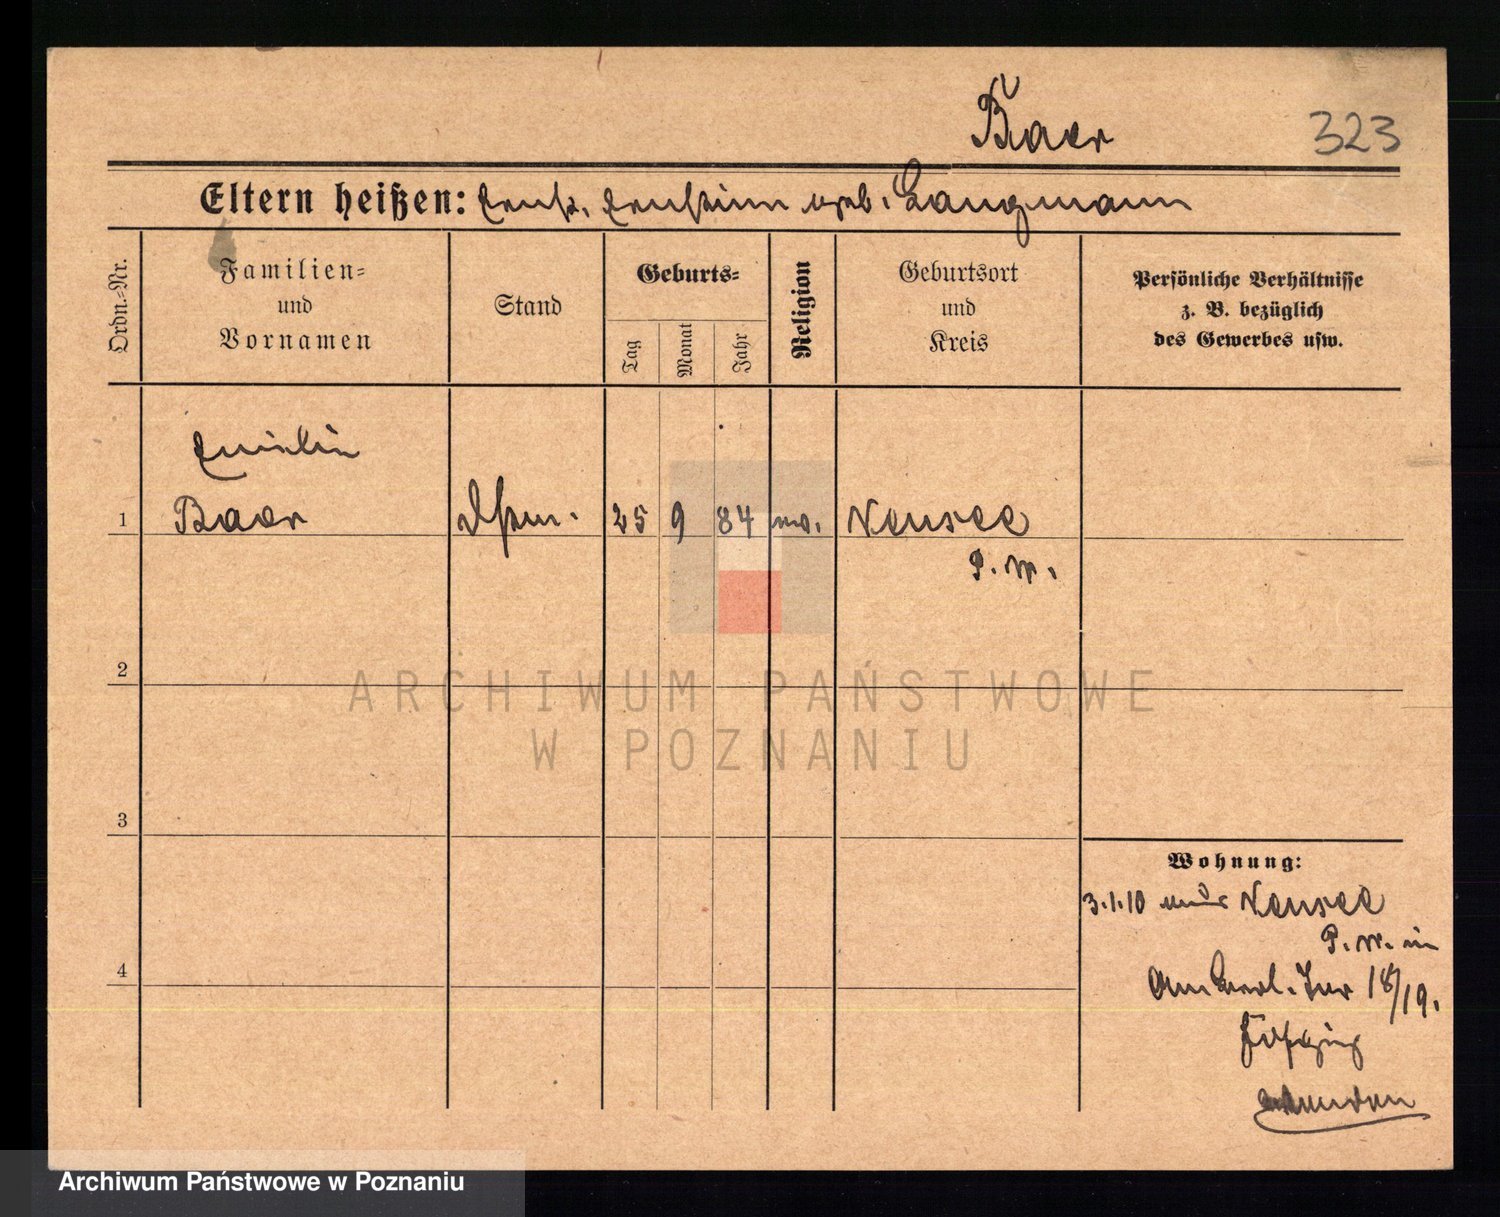 Baer
323
Eltern heißen: Ernst, Ernstine geb. Langmann
Ordn.=Nr.
Familien=
und
Vornamen
Stand
Geburts=
Tag
Monat
Jahr
Religion
Geburtsort
und
Kreis
Persönliche Verhältnisse
z. B. bezüglich
des Gewerbes usw.
Emilie
1 Baer 25 9 84 Neusee
P. W.
2
3
4
Wohnung:
3.1.10 Neusee
P. W. in
18/19.
ARCHIWUM PAŃSTWOWE
W POZNANIU
Archiwum Państwowe w Poznaniu